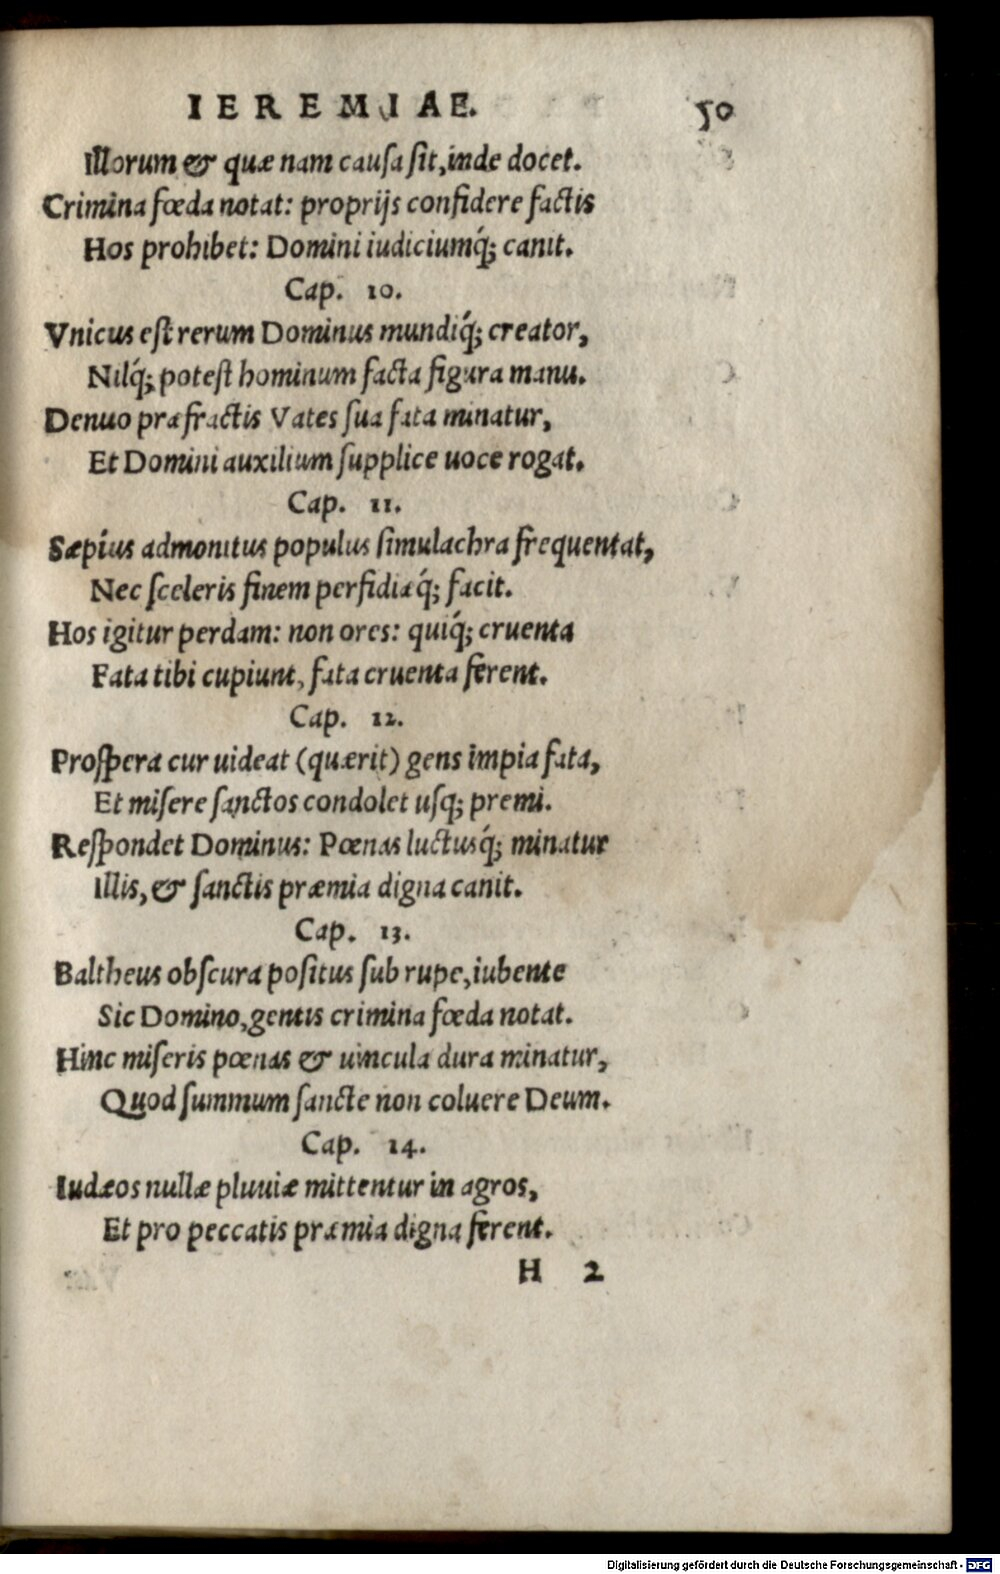 IEREMIAE. 50
Illorum & quæ nam causa sit, inde docet.
Crimina fœda notat: proprijs confidere factis
Hos prohibet: Domini iudiciumq́; canit.
Cap. 10.
Vnicus est rerum Dominus mundiq́; creator,
Nilq́; potest hominum facta figura manu.
Denuo præfractis Vates sua fata minatur,
Et Domini auxilium supplice uoce rogat.
Cap. 11.
Sæpius admonitus populus simulachra frequentat,
Nec sceleris finem perfidiæq́; facit.
Hos igitur perdam: non ores: quiq́; cruenta
Fata tibi cupiunt, fata cruenta ferent.
Cap. 12.
Prospera cur uideat (quærit) gens impia fata,
Et misere sanctos condolet usq; premi.
Respondet Dominus: Pœnas luctusq́; minatur
Illis, & sanctis præmia digna canit.
Cap. 13.
Baltheus obscura positus sub rupe, iubente
Sic Domino, gentis crimina fœda notat.
Hinc miseris pœnas & uincula dura minatur,
Quod summum sancte non coluere Deum.
Cap. 14.
Iudæos nullæ pluuiæ mittentur in agros,
Et pro peccatis præmia digna ferent.
H 2
Digitalisierung gefördert durch die Deutsche Forschungsgemeinschaft - DFG